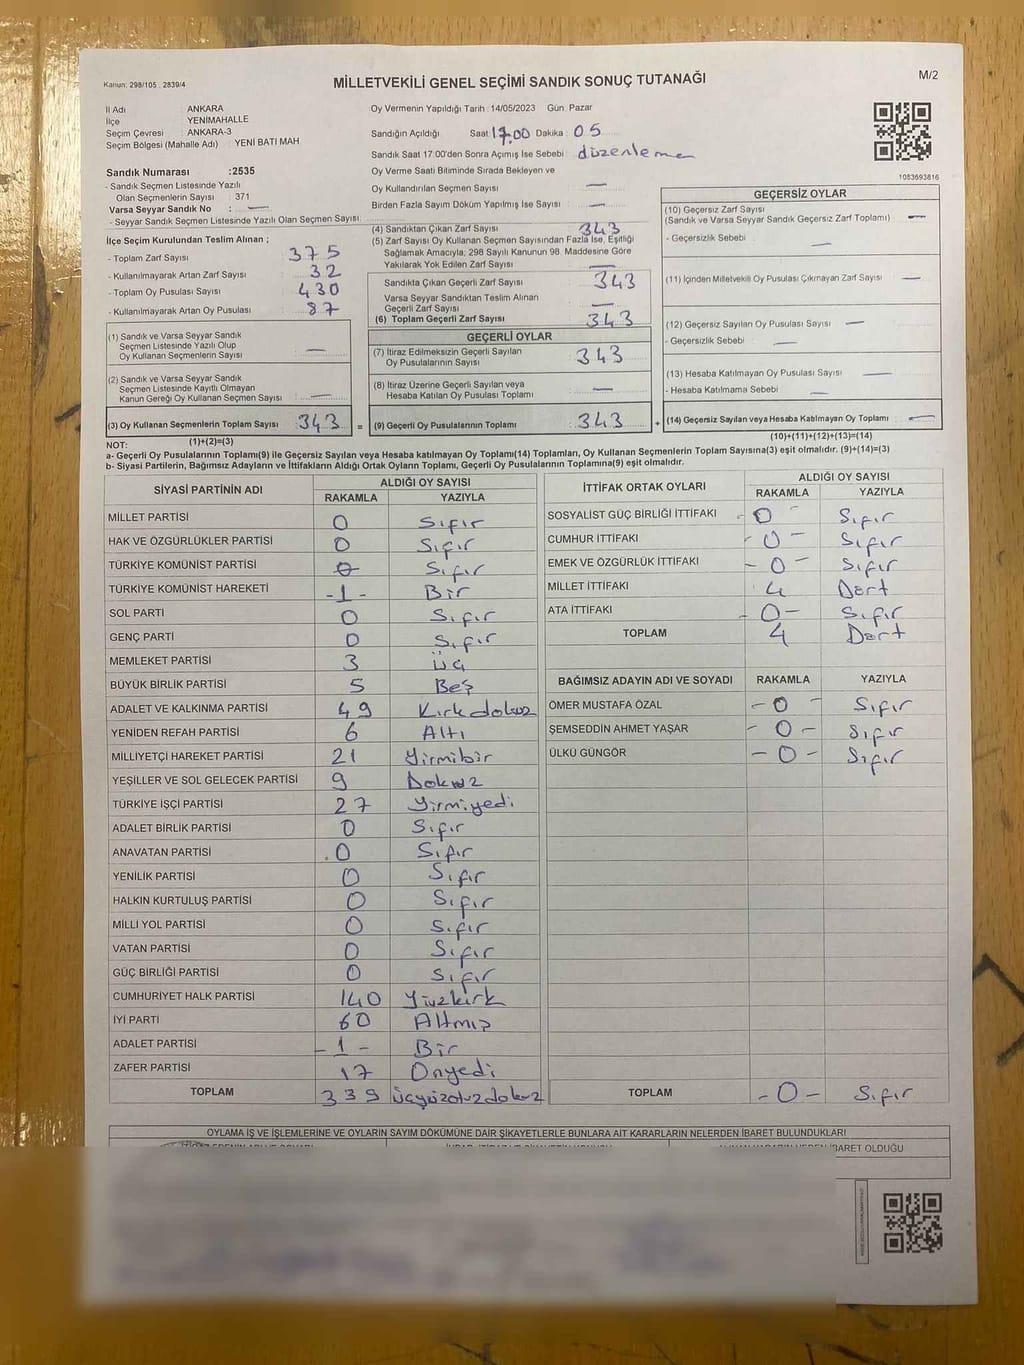 Kanun: 298/105 2839/4
MİLLETVEKİLİ GENEL SEÇİMİ SANDIK SONUÇ TUTANAĞI
M/2
İl Adı ANKARA
İlçe YENİMAHALLE
Seçim Çevresi ANKARA-3
Seçim Bölgesi (Mahalle Adı) YENİ BATI MAH
Sandık Numarası :2535
- Sandık Seçmen Listesinde Yazılı
Olan Seçmenlerin Sayısı : 371
Varsa Seyyar Sandık No : —
- Seyyar Sandık Seçmen Listesinde Yazılı Olan Seçmen Sayısı:
İlçe Seçim Kurulundan Teslim Alınan ;
- Toplam Zarf Sayısı : 375
- Kullanılmayarak Artan Zarf Sayısı : 32
- Toplam Oy Pusulası Sayısı : 430
- Kullanılmayarak Artan Oy Pusulası : 87
(1) Sandık ve Varsa Seyyar Sandık
Seçmen Listesinde Yazılı Olup
Oy Kullanan Seçmenlerin Sayısı : —
(2) Sandık ve Varsa Seyyar Sandık
Seçmen Listesinde Kayıtlı Olmayan
Kanun Gereği Oy Kullanan Seçmen Sayısı : —
(3) Oy Kullanan Seçmenlerin Toplam Sayısı : 343 =
(1)+(2)=(3)
Oy Vermenin Yapıldığı Tarih : 14/05/2023 Gün: Pazar
Sandığın Açıldığı Saat: 17.00 Dakika : 05
Sandık Saat 17:00'den Sonra Açımış İse Sebebi : düzenleme
Oy Verme Saati Bitiminde Sırada Bekleyen ve
Oy Kullandırılan Seçmen Sayısı —
Birden Fazla Sayım Döküm Yapılmış İse Sayısı —
(4) Sandıktan Çıkan Zarf Sayısı : 343
(5) Zarf Sayısı Oy Kullanan Seçmen Sayısından Fazla İse, Eşitliği
Sağlamak Amacıyla, 298 Sayılı Kanunun 98. Maddesine Göre
Yakılarak Yok Edilen Zarf Sayısı : —
Sandıkta Çıkan Geçerli Zarf Sayısı : 343
Varsa Seyyar Sandıktan Teslim Alınan
Geçerli Zarf Sayısı : —
(6) Toplam Geçerli Zarf Sayısı : 343
GEÇERLİ OYLAR
(7) İtiraz Edilmeksizin Geçerli Sayılan
Oy Pusulalarının Sayısı : 343
(8) İtiraz Üzerine Geçerli Sayılan veya
Hesaba Katılan Oy Pusulası Toplamı : —
(9) Geçerli Oy Pusulalarının Toplamı : 343 +
1083693816
GEÇERSİZ OYLAR
(10) Geçersiz Zarf Sayısı
(Sandık ve Varsa Seyyar Sandık Geçersiz Zarf Toplamı) : —
- Geçersizlik Sebebi : —
(11) İçinden Milletvekili Oy Pusulası Çıkmayan Zarf Sayısı : —
(12) Geçersiz Sayılan Oy Pusulası Sayısı : —
- Geçersizlik Sebebi : —
(13) Hesaba Katılmayan Oy Pusulası Sayısı : —
- Hesaba Katılmama Sebebi : —
(14) Geçersiz Sayılan veya Hesaba Katılmayan Oy Toplamı : —
(10)+(11)+(12)+(13)=(14)
NOT:
a- Geçerli Oy Pusulalarının Toplamı(9) ile Geçersiz Sayılan veya Hesaba katılmayan Oy Toplamı(14) Toplamları, Oy Kullanan Seçmenlerin Toplam Sayısına(3) eşit olmalıdır. (9)+(14)=(3)
b- Siyasi Partilerin, Bağımsız Adayların ve İttifakların Aldığı Ortak Oyların Toplamı, Geçerli Oy Pusulalarının Toplamına(9) eşit olmalıdır.
SİYASİ PARTİNİN ADI ALDIĞI OY SAYISI
RAKAMLA YAZIYLA
MİLLET PARTİSİ 0 Sıfır
HAK VE ÖZGÜRLÜKLER PARTİSİ 0 Sıfır
TÜRKİYE KOMÜNİST PARTİSİ 0 Sıfır
TÜRKİYE KOMÜNİST HAREKETİ -1- Bir
SOL PARTİ 0 Sıfır
GENÇ PARTİ 0 Sıfır
MEMLEKET PARTİSİ 3 Üç
BÜYÜK BİRLİK PARTİSİ 5 Beş
ADALET VE KALKINMA PARTİSİ 49 Kırkdokuz
YENİDEN REFAH PARTİSİ 6 Altı
MİLLİYETÇİ HAREKET PARTİSİ 21 Yirmibir
YEŞİLLER VE SOL GELECEK PARTİSİ 9 Dokuz
TÜRKİYE İŞÇİ PARTİSİ 27 Yirmiyedi
ADALET BİRLİK PARTİSİ 0 Sıfır
ANAVATAN PARTİSİ 0 Sıfır
YENİLİK PARTİSİ 0 Sıfır
HALKIN KURTULUŞ PARTİSİ 0 Sıfır
MİLLİ YOL PARTİSİ 0 Sıfır
VATAN PARTİSİ 0 Sıfır
GÜÇ BİRLİĞİ PARTİSİ 0 Sıfır
CUMHURİYET HALK PARTİSİ 140 Yüzkırk
İYİ PARTİ 60 Altmış
ADALET PARTİSİ -1- Bir
ZAFER PARTİSİ 17 Onyedi
TOPLAM 339 üçyüzotuzdokuz
İTTİFAK ORTAK OYLARI ALDIĞI OY SAYISI
RAKAMLA YAZIYLA
SOSYALİST GÜÇ BİRLİĞİ İTTİFAKI -0- Sıfır
CUMHUR İTTİFAKI -0- Sıfır
EMEK VE ÖZGÜRLÜK İTTİFAKI -0- Sıfır
MİLLET İTTİFAKI 4 Dört
ATA İTTİFAKI -0- Sıfır
TOPLAM 4 Dört
BAĞIMSIZ ADAYIN ADI VE SOYADI RAKAMLA YAZIYLA
ÖMER MUSTAFA ÖZAL -0- Sıfır
ŞEMSEDDİN AHMET YAŞAR -0- Sıfır
ÜLKÜ GÜNGÖR -0- Sıfır
TOPLAM -0- Sıfır
OYLAMA İŞ VE İŞLEMLERİNE VE OYLARIN SAYIM DÖKÜMÜNE DAİR ŞİKAYETLERLE BUNLARA AİT KARARLARIN NELERDEN İBARET BULUNDUKLARI
İBARET OLDUĞU